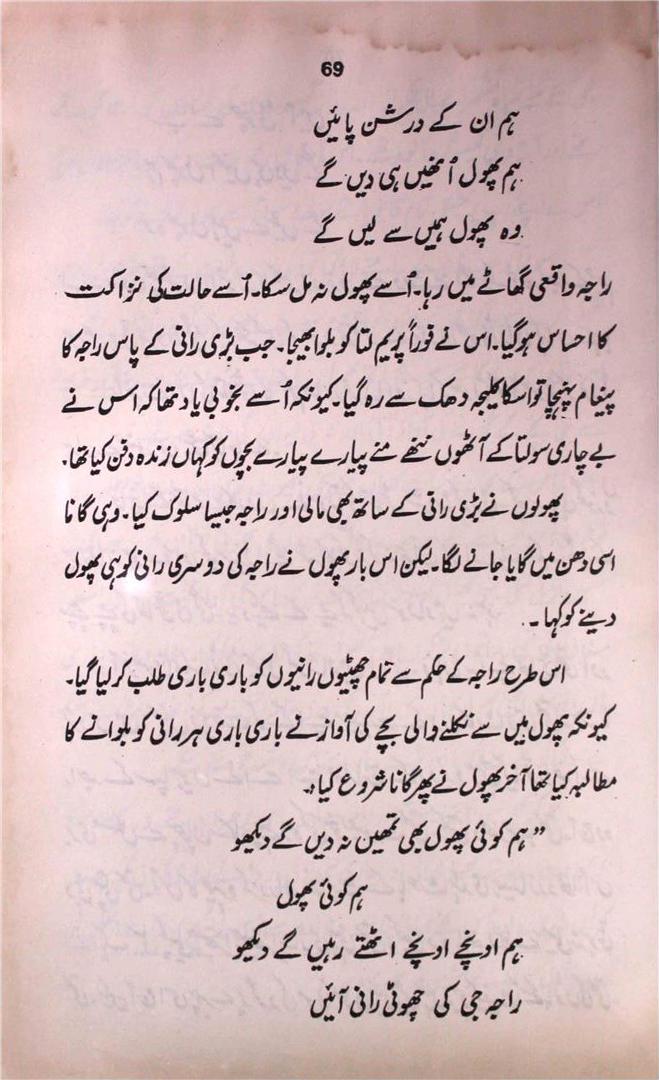 69
ہم ان کے درشن پائیں
ہم پھول اُنھیں ہی دیں گے
وہ پھول ہمیں سے لیں گے
راجہ واقعی گھاٹے میں رہا۔ اُسے پھول نہ مل سکا۔ اُسے حالت کی نزاکت
کا احساس ہوگیا۔ اس نے فوراً پریم لتا کو بلوا بھیجا۔ جب بڑی رانی کے پاس راجہ کا
پیغام پہنچا تو اسکا کلیجہ دھک سے رہ گیا۔ کیونکہ اُسے بخوبی یاد تھا کہ اس نے
بے چاری سولتا کے آٹھوں ننھے منے پیارے پیارے بچوں کو کہاں زندہ دفن کیا تھا۔
پھولوں نے بڑی رانی کے ساتھ بھی مالی اور راجہ جیسا سلوک کیا۔ وہی گانا
اسی دھن میں گایا جانے لگا۔ لیکن اس بار پھول نے راجہ کی دوسری رانی کو ہی پھول
دینے کو کہا۔
اس طرح راجہ کے حکم سے تمام چھٹیوں رانیوں کو باری باری طلب کر لیا گیا۔
کیونکہ پھول میں سے نکلنے والی بچے کی آواز نے باری باری ہر رانی کو بلوانے کا
مطالبہ کیا تھا آخر پھول نے پھر گانا شروع کیا،۔
”ہم کوئی پھول بھی تمھیں نہ دیں گے دیکھو
ہم کوئی پھول
ہم اونچے اونچے اٹھتے رہیں گے دیکھو
راجہ جی کی چھوٹی رانی آئیں